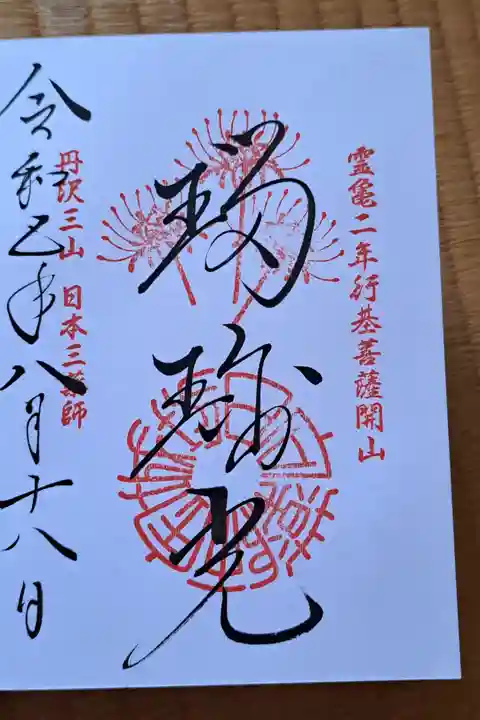 霊亀二年行基菩薩開山
瑠璃光
丹沢三山 日本三薬師
令和巳年八月十八日